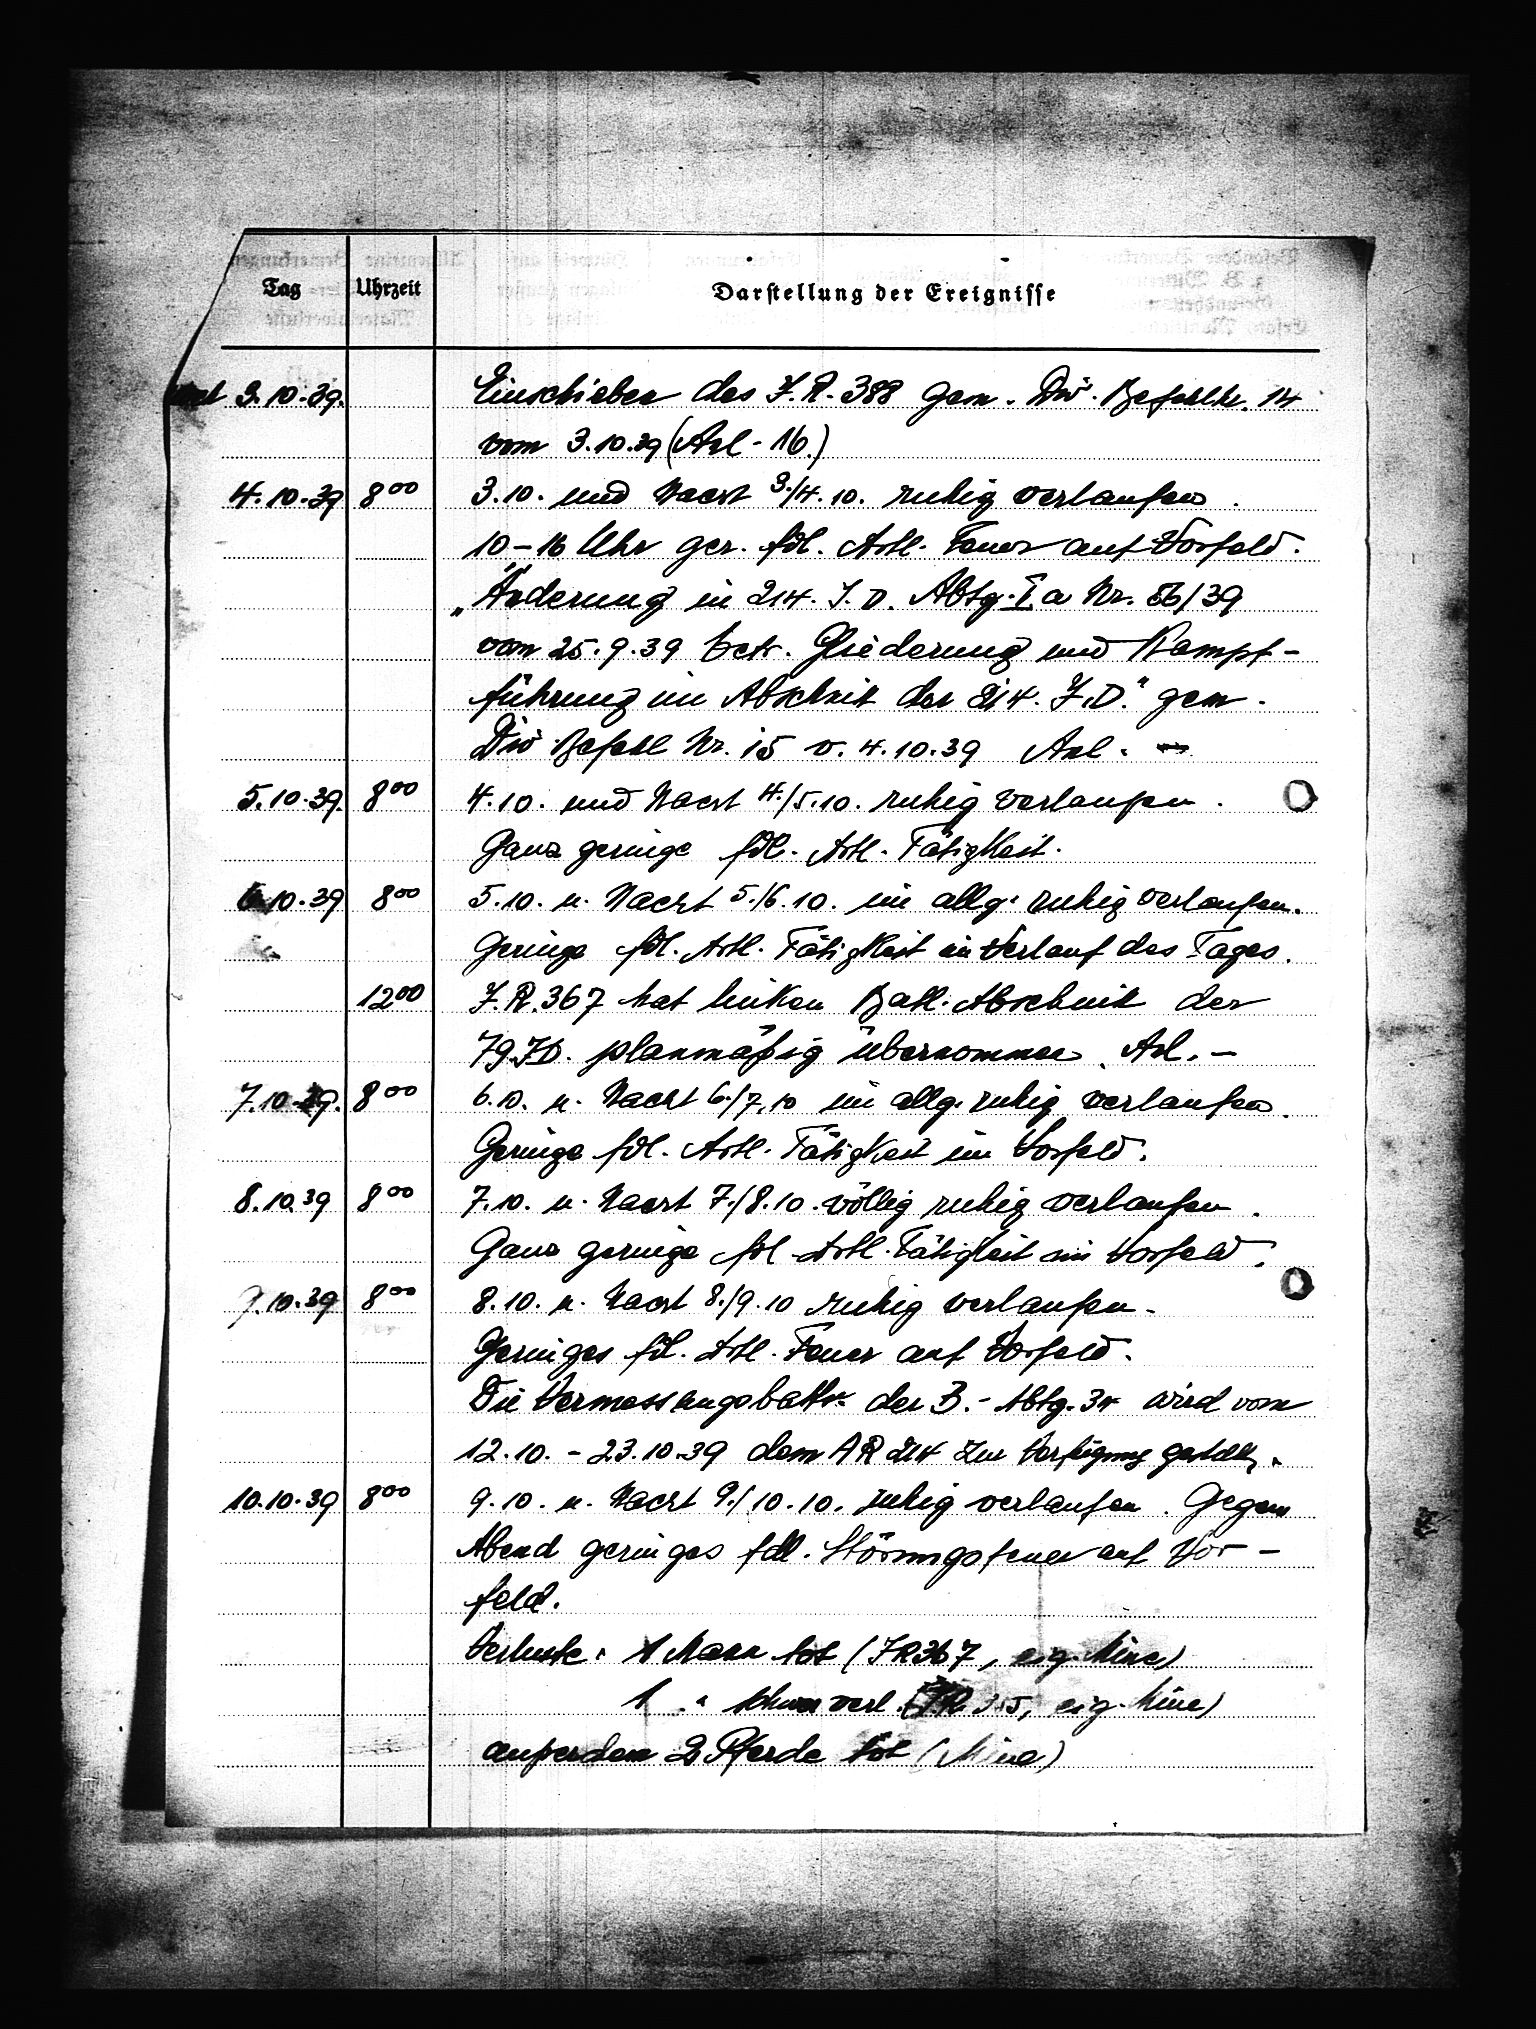 Tag Uhrzeit Darstellung der Ereignisse
3.10.39. Einschieben des J.R. 388 gem. Div. Befehl Nr. 14
vom 3.10.39 (Anl. 16.)
4.10.39 8⁰⁰ 3.10. und Nacht 3./4.10. ruhig verlaufen.
10–16 Uhr ger. fdl. Artl. Feuer auf Vorfeld.
„Änderung in 214. J.D. Abtg. Ia Nr. /39
vom 25.9.39 betr. Gliederung und Kampf-
führung im Abschnitt der 214. J.D." gem.
Div. Befehl Nr. 15 v. 4.10.39 Anl.
5.10.39. 8⁰⁰ 4.10. und Nacht 4./5.10. ruhig verlaufen.
Ganz geringe fdl. Artl. Tätigkeit.
6.10.39 8⁰⁰ 5.10. u. Nacht 5./6.10. im allg. ruhig verlaufen.
Geringe fdl. Artl. Tätigkeit im Verlauf des Tages.
12⁰⁰ J.R. 367 hat linken Batl. Abschnitt der
79.J.D. planmäßig übernommen. Anl. –
7.10.39. 8⁰⁰ 6.10. u. Nacht 6./7.10 im allg. ruhig verlaufen.
Geringe fdl. Artl. Tätigkeit im Vorfeld.
8.10.39 8⁰⁰ 7.10. u. Nacht 7./8.10. völlig ruhig verlaufen.
Ganz geringe fdl. Artl. Tätigkeit im Vorfeld.
9.10.39 8⁰⁰ 8.10. u. Nacht 8./9.10 ruhig verlaufen.
Geringes fdl. Artl. Feuer auf Vorfeld.
Die Vermessungsbattr. der B.-Abtg. 34 wird vom
12.10. – 23.10.39 dem AR 214 zur Verfügung gestellt.
10.10.39 8⁰⁰ 9.10. u. Nacht 9./10.10. ruhig verlaufen. Gegen
Abend geringes fdl. Störungsfeuer auf Vor-
feld.
Verluste: 1 Mann tot (JR 367, eig. Mine)
1 " schwer verl. (J.R. eig. Mine)
außerdem 2 Pferde tot (Mine)